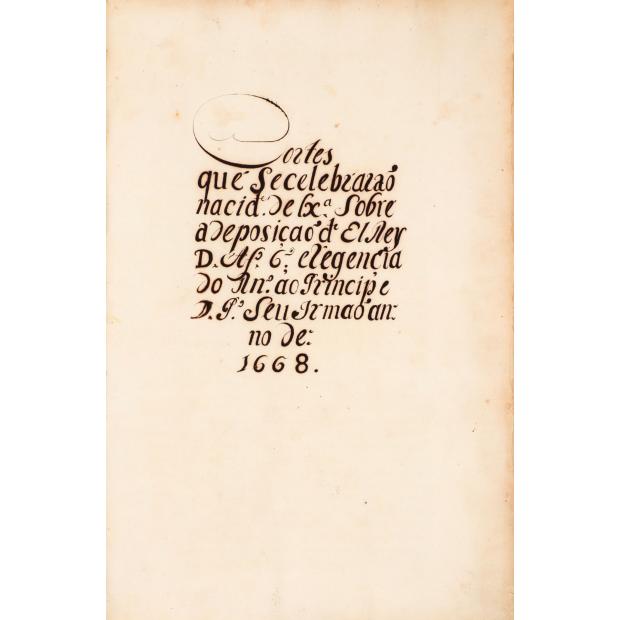 Cortes
que Secelebraraõ
nacid.e de Lx.a Sobre
a Deposiçaõ d' El Rey
D. Af.o 6.o e Regencia
do Rn.o ao Principe
D. P.o Seu Irmaõ an:
no de:
1668.